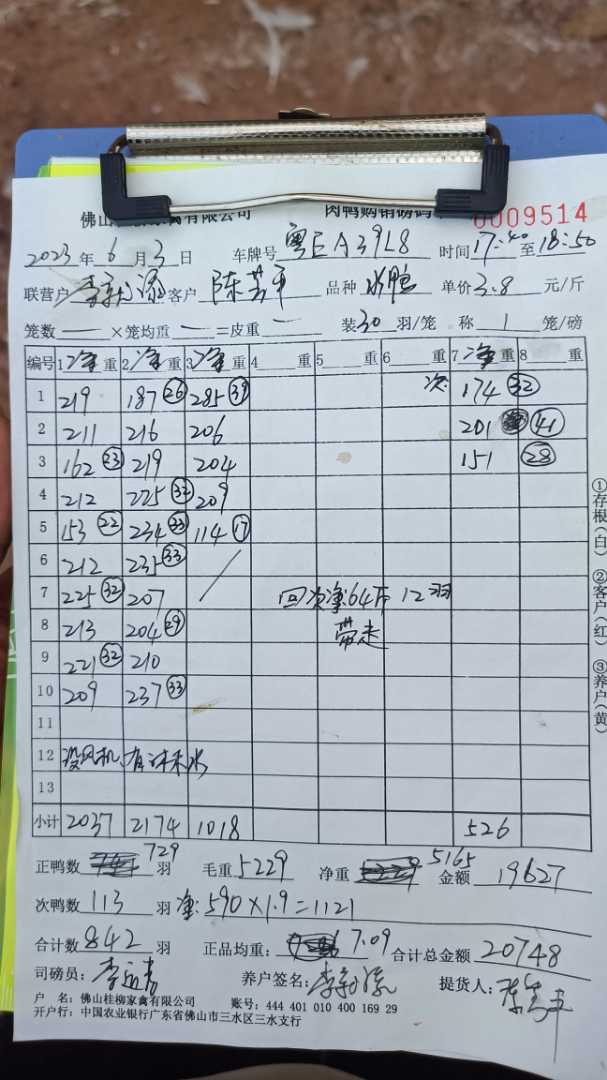 佛山 有限公司 肉鸭购销磅码 0009514
2023年6月3日 车牌号 粤EA39L8 时间17:40至18:50
联营户 客户 陈 平 品种 水鸭 单价3.8元/斤
笼数 — ×笼均重 — =皮重 — 装30羽/笼 称 1 笼/磅
编号 1净重 2净重 3净重 4 重 5 重 6 重 7净重 8 重
1 219 187(26) 285(39) 次: 174(32)
2 211 216 206 201 (41)
3 162(23) 219 204 151 (28)
4 212 225(32) 209
5 153(22) 234(33) 114(17)
6 212 235(33)
7 225(32) 207 回次净:64斤 12羽
8 213 204(29) 带走
9 221(32) 210
10 209 237(33)
11
12 没风机,有冲禾水
13
小计 2037 2174 1018 526
正鸭数 729 羽 毛重 5229 净重 5165 金额 19627
次鸭数 113 羽 净:590×1.9=1121
合计数 842 羽 正品均重: 7.09 合计总金额 20748
司磅员: 养户签名: 提货人:
户 名:佛山桂柳家禽有限公司 账号:444 401 010 400 169 29
开户行:中国农业银行广东省佛山市三水区三水支行
①存根(白) ②客户(红) ③养户(黄)